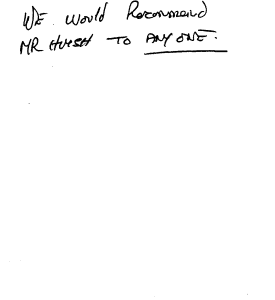 WE would Recommend
MR TO ANYONE.